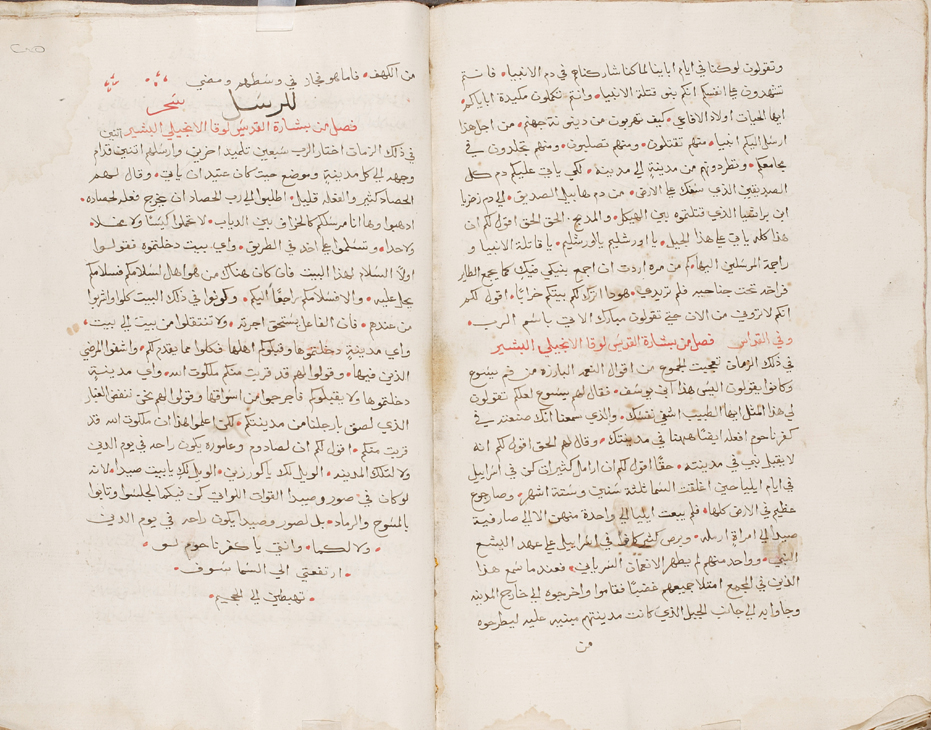 وتقولون لوكنا في ايام اباينا لما كنا شاركناهم في دم الانبيا • فانتم
تشهدون على انفسكم انكم بنو قتلة الانبيا • وانتم تكملون مكيدة ابايكم •
ايها الحيات اولاد الافاعي • كيف تهربون من دينونة جهنم • من اجل هذا
ارسل اليكم انبيا • منهم تقتلون • ومنهم تصلبون • ومنهم تجلدون في
مجامعكم • وتطردونهم من مدينة الى مدينة • لكي ياتي عليكم دم كل
الصديقين الذي سفك على الارض • من دم هابيل الصديق • الى دم زخريا
ابن براشيا الذي قتلتموه بين الهيكل • والمذبح • الحق الحق اقول لكم ان
هذا كله ياتي على هذا الجيل • يا اورشليم يا اورشليم • يا قاتلة الانبيا و
راجمة المرسلين اليها • كم من مره اردت ان اجمع بنيكي فيك كما يجمع الطاير
فراخه تحت جناحيه فلم تريدي • هوذا اترك لكم بيتكم خرابا • اقول لكم
انكم لا تروني من الان حتى تقولون مبارك الاتي باسم الرب •
وفي القداس فصل من بشارة القديس لوقا الانجيلي البشير
في ذلك الزمان تعجبت الجموع من اقوال النعمه البارزه من فم يسوع
وكانوا يقولون اليس هذا ابن يوسف • فقال لهم يسوع لعلكم تقولون
لي هذا المثل ايها الطبيب اشفي نفسك • والذي سمعنا انك صنعته في
كفرناحوم افعله ايضا ههنا في مدينتك • وقال لهم الحق اقول لكم انه
لا يقبل نبي في مدينته • حقا اقول لكم ان ارامل كثيرات كن في اسراييل
في ايام ايليا حين اغلقت السما ثلثة سنين وستة اشهر • وصار جوع
عظيم في الارض كلها • فلم يبعث ايليا الى واحدة منهن الا الى صارفية
صيدا الى امراة ارمله • وبرص كثير كانوا في اسراييل على عهد اليشع
النبي • وواحد منهم لم يطهر الا نعمان السرياني • فعندما سمع هذا
الذين في المجمع امتلا جميعهم غضبا • فقاموا واخرجوه الى خارج المدينه
وجاوا به الى جانب الجبل الذي كانت مدينتهم مبنيه عليه ليطرحوه
من
من الكهف • فاما هو فجاز في وسطهم ومضي
للرسل سحر
فصل من بشارة القديس لوقا الانجيلي البشير
في ذلك الزمان اختار الرب سبعين تلميذ اخرين وارسلهم اثنين اثنين قدام
وجهه الى كل مدينة وموضع حيث كان عتيد ان ياتي • وقال لهم
الحصاد كثير والفعله قليل • اطلبوا الى رب الحصاد ان يخرج فعله لحصاده •
اذهبوا وها انا مرسلكم كالخراف بين الدياب • لا تحملوا كيسا ولا مخلا •
ولا حدا • وتسلموا على احد في الطريق • واي بيت دخلتموه فقولوا
اولا السلام لهذا البيت فان كان هناك من هو اهل لسلامكم فسلامكم
يحل عليه • والا فسلامكم راجعا اليكم • وكونوا في ذلك البيت كلوا واشربوا
من عندهم • فان الفاعل يستحق اجرته • ولا تنتقلوا من بيت الى بيت •
واي مدينة دخلتموها وقبلوكم اهلها فكلوا مما يقدم لكم • واشفوا المرضي
الذي فيها • وقولوا لهم قد قربت منكم ملكوت الله • واي مدينة
دخلتموها ولا يقبلوكم فاخرجوا من اسواقها وقولوا لهم نحن ننفض الغبار
الذي لصق بارجلنا من مدينتكم • لكن اعلموا هذا ان ملكوت الله قد
قربت منكم • اقول لكم ان لصادوم وعاموره يكون راحه في يوم الدين
ولا لتلك المدينه • الويل لك يا كورزين • الويل لك يا بيت صيدا • لانه
لو كان في صور وصيدا القوات اللواتي كن فيكما لجلسوا وتابوا
بالمسوح والرماد • بل لصور وصيدا يكون راحه في يوم الدين
• ولا لكما • وانتي يا كفرناحوم لو •
• ارتفعتي الي السما سوف •
• تهبطين الى الجحيم •